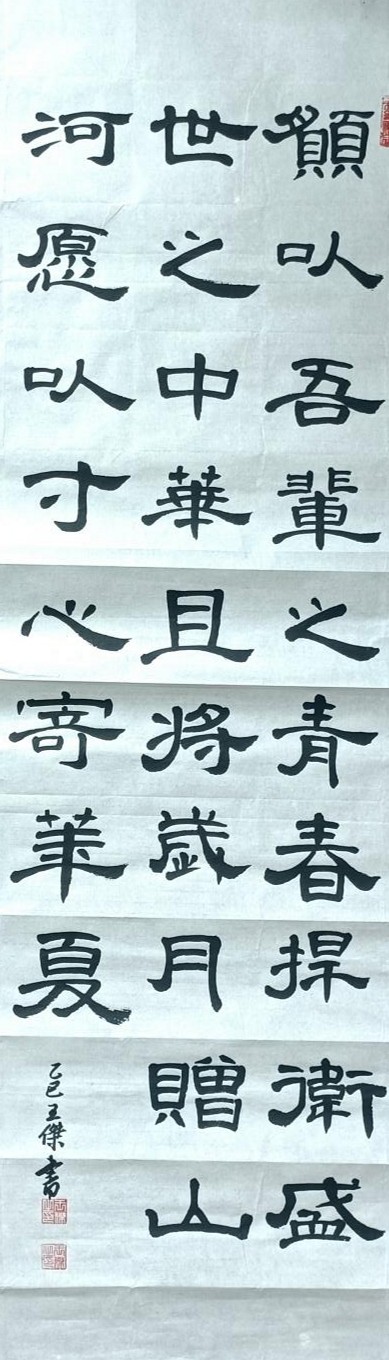 願以吾輩之青春捍衛盛
世之中華且將歲月贈山
河愿以寸心寄華夏
乙巳王傑書